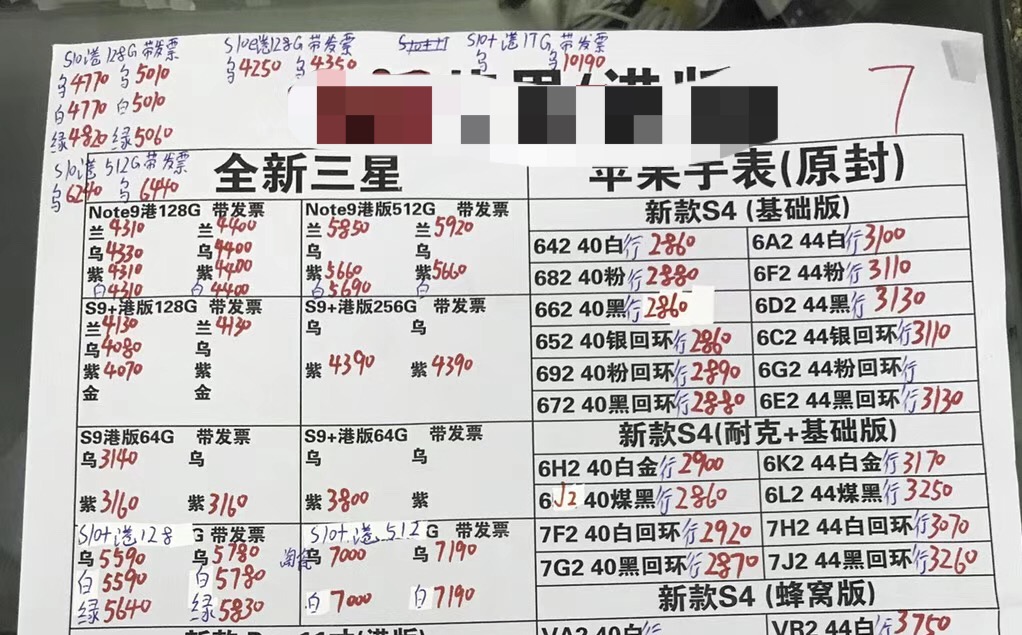 S10港128G带发票
乌4770 乌5010
白4770 白5010
绿4820 绿5060
S10e港128G带发票
乌4250 乌4350
S10+港1TG 带发票
乌 乌10190
7
S10港512G带发票
乌6240 乌6440
全新三星
Note9港128G 带发票
兰4310 兰4400
乌4330 乌4400
紫4310 紫4400
白4310 白4400
Note9港版512G 带发票
兰5850 兰5920
乌 乌
紫5660 紫5660
白5690 白
S9+港版128G 带发票
兰4130 兰4130
乌4080 乌
紫4070 紫
金 金
S9+港版256G 带发票
乌 乌
紫4390 紫4390
S9港版64G 带发票
乌3140 乌
紫3160 紫3160
S9+港版64G 带发票
乌 乌
紫3800 紫
S10+港128G 带发票
乌5590 乌5780
白5590 白5780
绿5640 绿5830
S10+港512G 带发票
乌7000 乌7190
白7000 白7190
苹果手表(原封)
新款S4 (基础版)
642 40白行2860 6A2 44白行3100
682 40粉行2880 6F2 44粉行3110
662 40黑行2860 6D2 44黑行3130
652 40银回环行2860 6C2 44银回环行3110
692 40粉回环行2890 6G2 44粉回环行
672 40黑回环行2880 6E2 44黑回环行3130
新款S4(耐克+基础版)
6H2 40白金行2900 6K2 44白金行3170
6J2 40煤黑行2860 6L2 44煤黑行3250
7F2 40白回环行2920 7H2 44白回环行3070
7G2 40黑回环行2870 7J2 44黑回环行3260
新款S4 (蜂窝版)
VA2 40白行 VB2 44白行3750